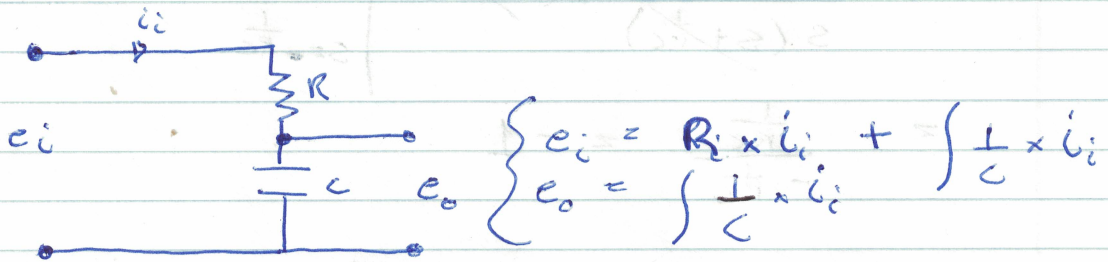 i_i
R
e_i
C
e_o
e_i = R_i × i_i + ∫ 1/C × i_i
e_o = ∫ 1/C × i_i